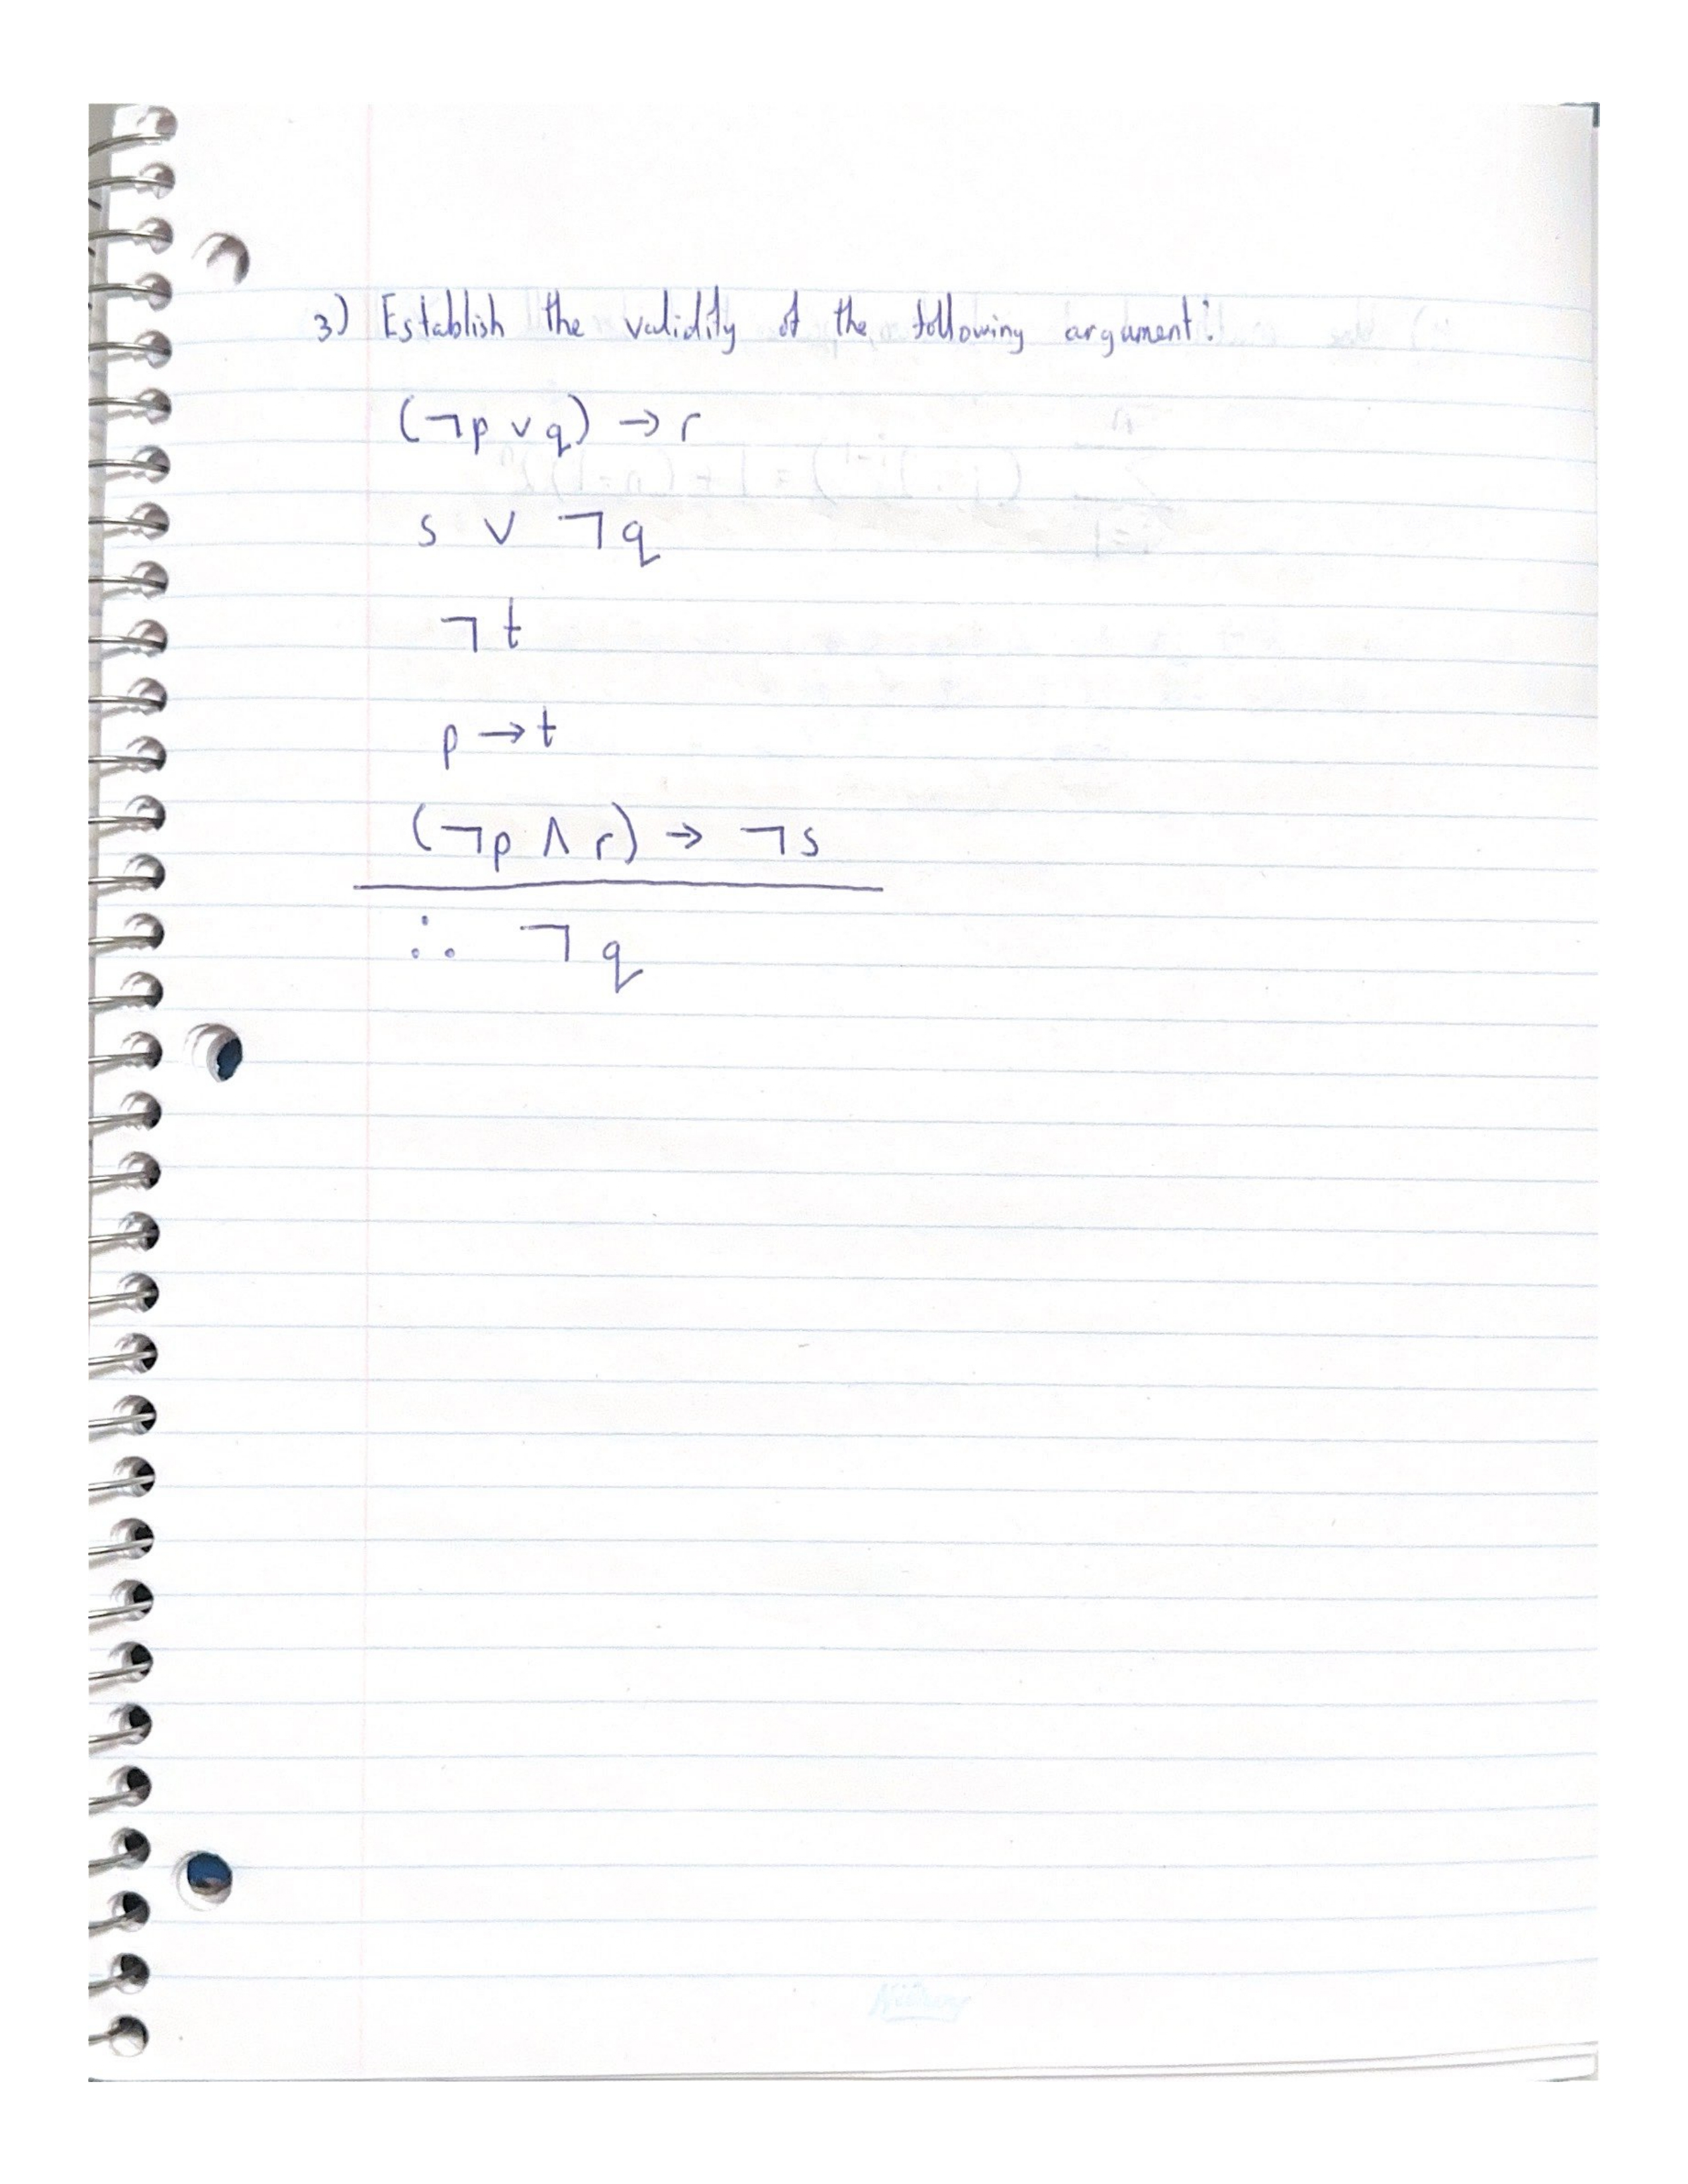 3) Establish the validity of the following argument:
(¬p ∨ q) → r
s ∨ ¬q
¬t
p → t
(¬p ∧ r) → ¬s
∴ ¬q